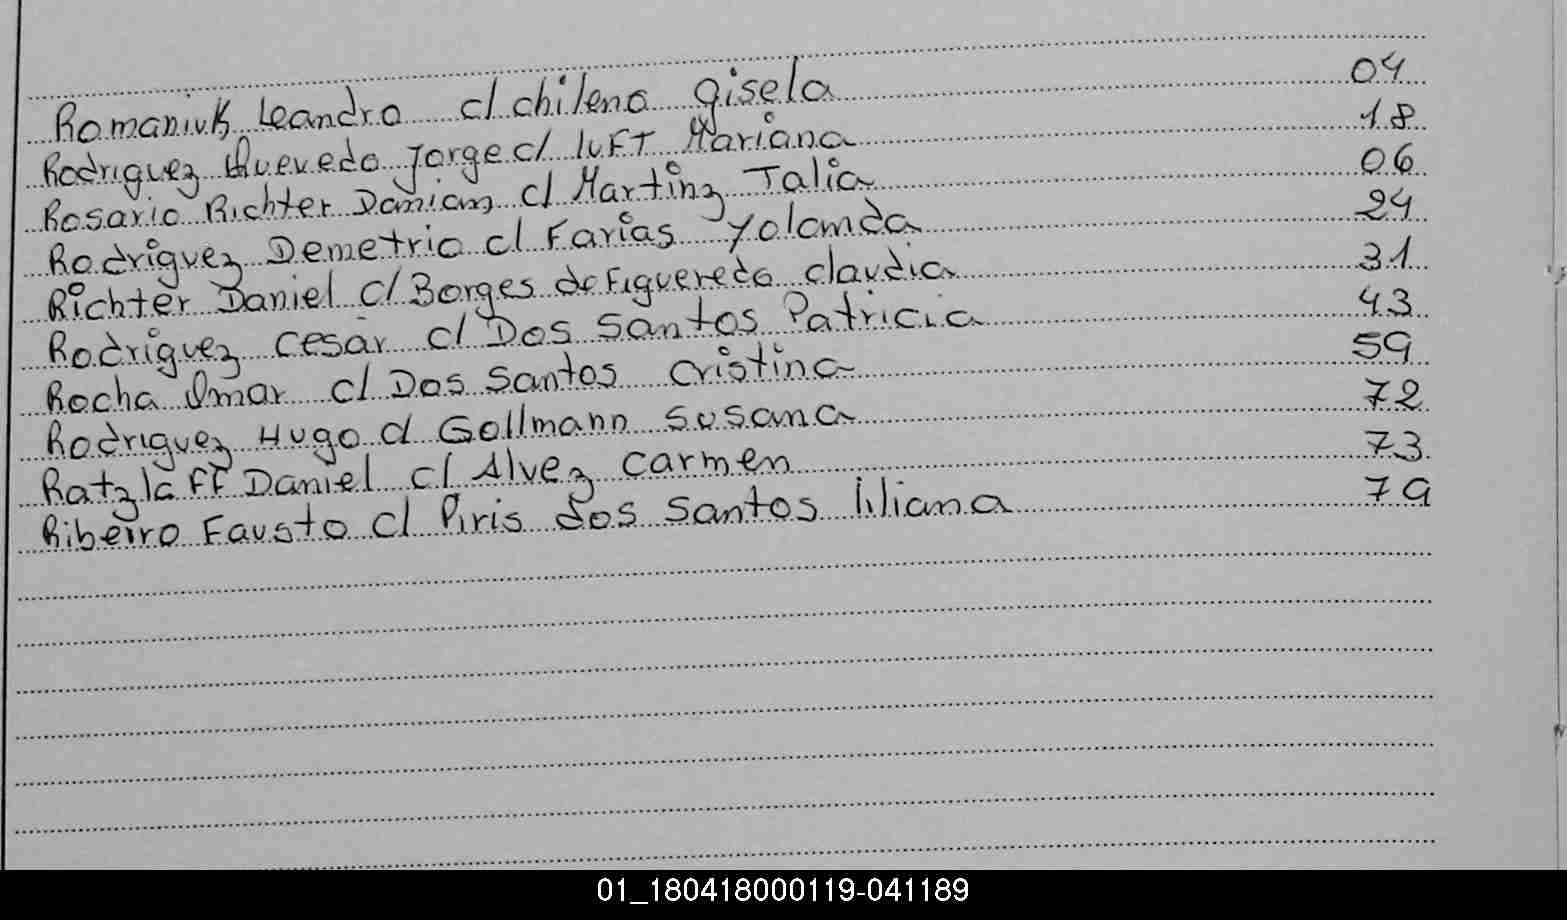 Romaniuk Leandro c/ chileno gisela 04
Rodriguez Quevedo Jorge c/ luft Mariana 18
Rosario Richter Damian c/ Martinz Talia 06
Rodriguez Demetrio c/ Farias Yolanda 24
Richter Daniel c/ Borges de Figueredo claudia 31
Rodriguez cesar c/ Dos Santos Patricia 43
Rocha Omar c/ Dos Santos cristina 59
Rodriguez Hugo c/ Gollmann Susana 72
Ratzlaff Daniel c/ Alvez carmen 73
Ribeiro Fausto c/ Piris dos Santos liliana 79
01_180418000119-041189